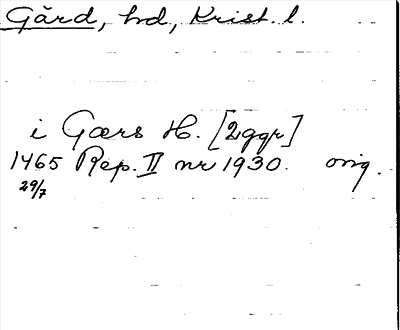 Gärd, hd, Krist. l.
i Gærs H. [2ggr]
1465 Rep. II nr 1930. orig.
29/7